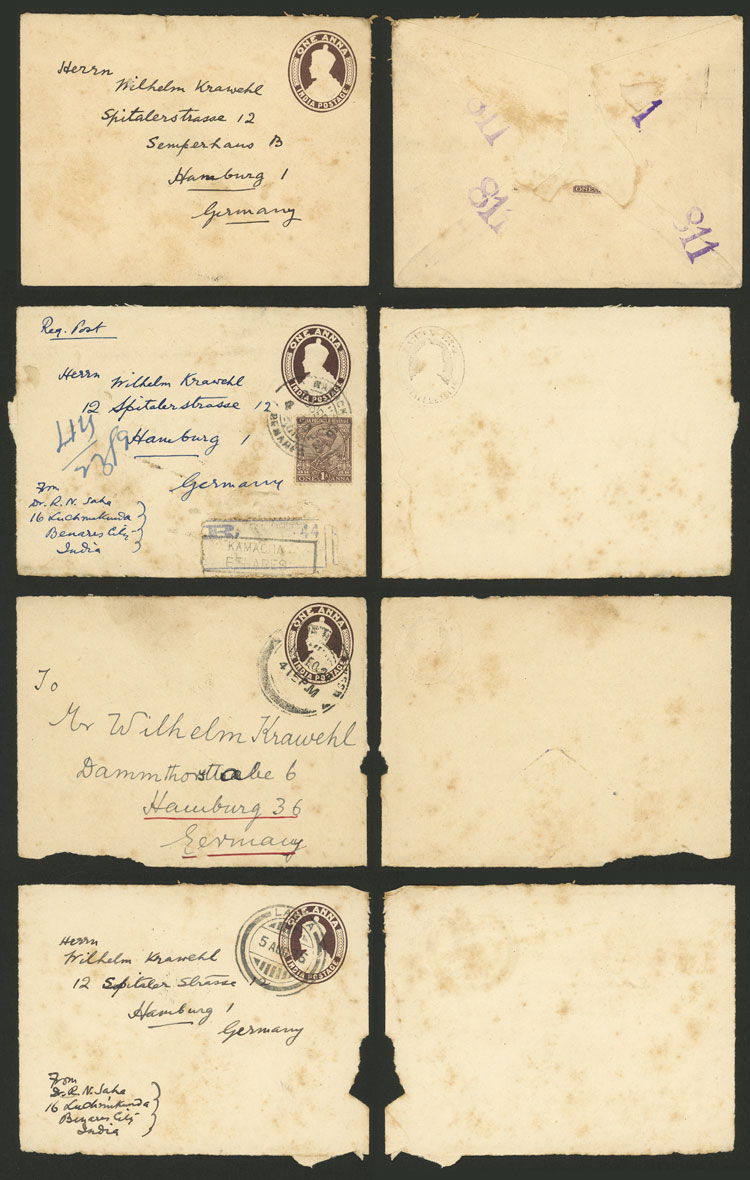 ONE ANNA
INDIA POSTAGE
Herrn
Wilhelm Krawehl
Spitalerstrasse 12
Semperhaus B
Hamburg 1
Germany
811
1
ONE
811
811
Reg. Post
ONE ANNA
INDIA POSTAGE
Herrn
Wilhelm Krawehl
12 Spitalerstrasse 12
Hamburg 1
Germany
ONE ANNA
From
Dr. R. N. Saha
16 Luchmikunda
Benares City
India
R. 44
KAMACHA
BENARES
ONE ANNA
INDIA POSTAGE
4 15 PM
To
Mr Wilhelm Krawehl
6
Hamburg 36
Germany
ONE ANNA
INDIA POSTAGE
5 AUG
Herrn
Wilhelm Krawehl
12 Spitaler Strasse 12
Hamburg 1
Germany
From
Dr. R. N. Saha
16 Luchmikunda
Benares City
India